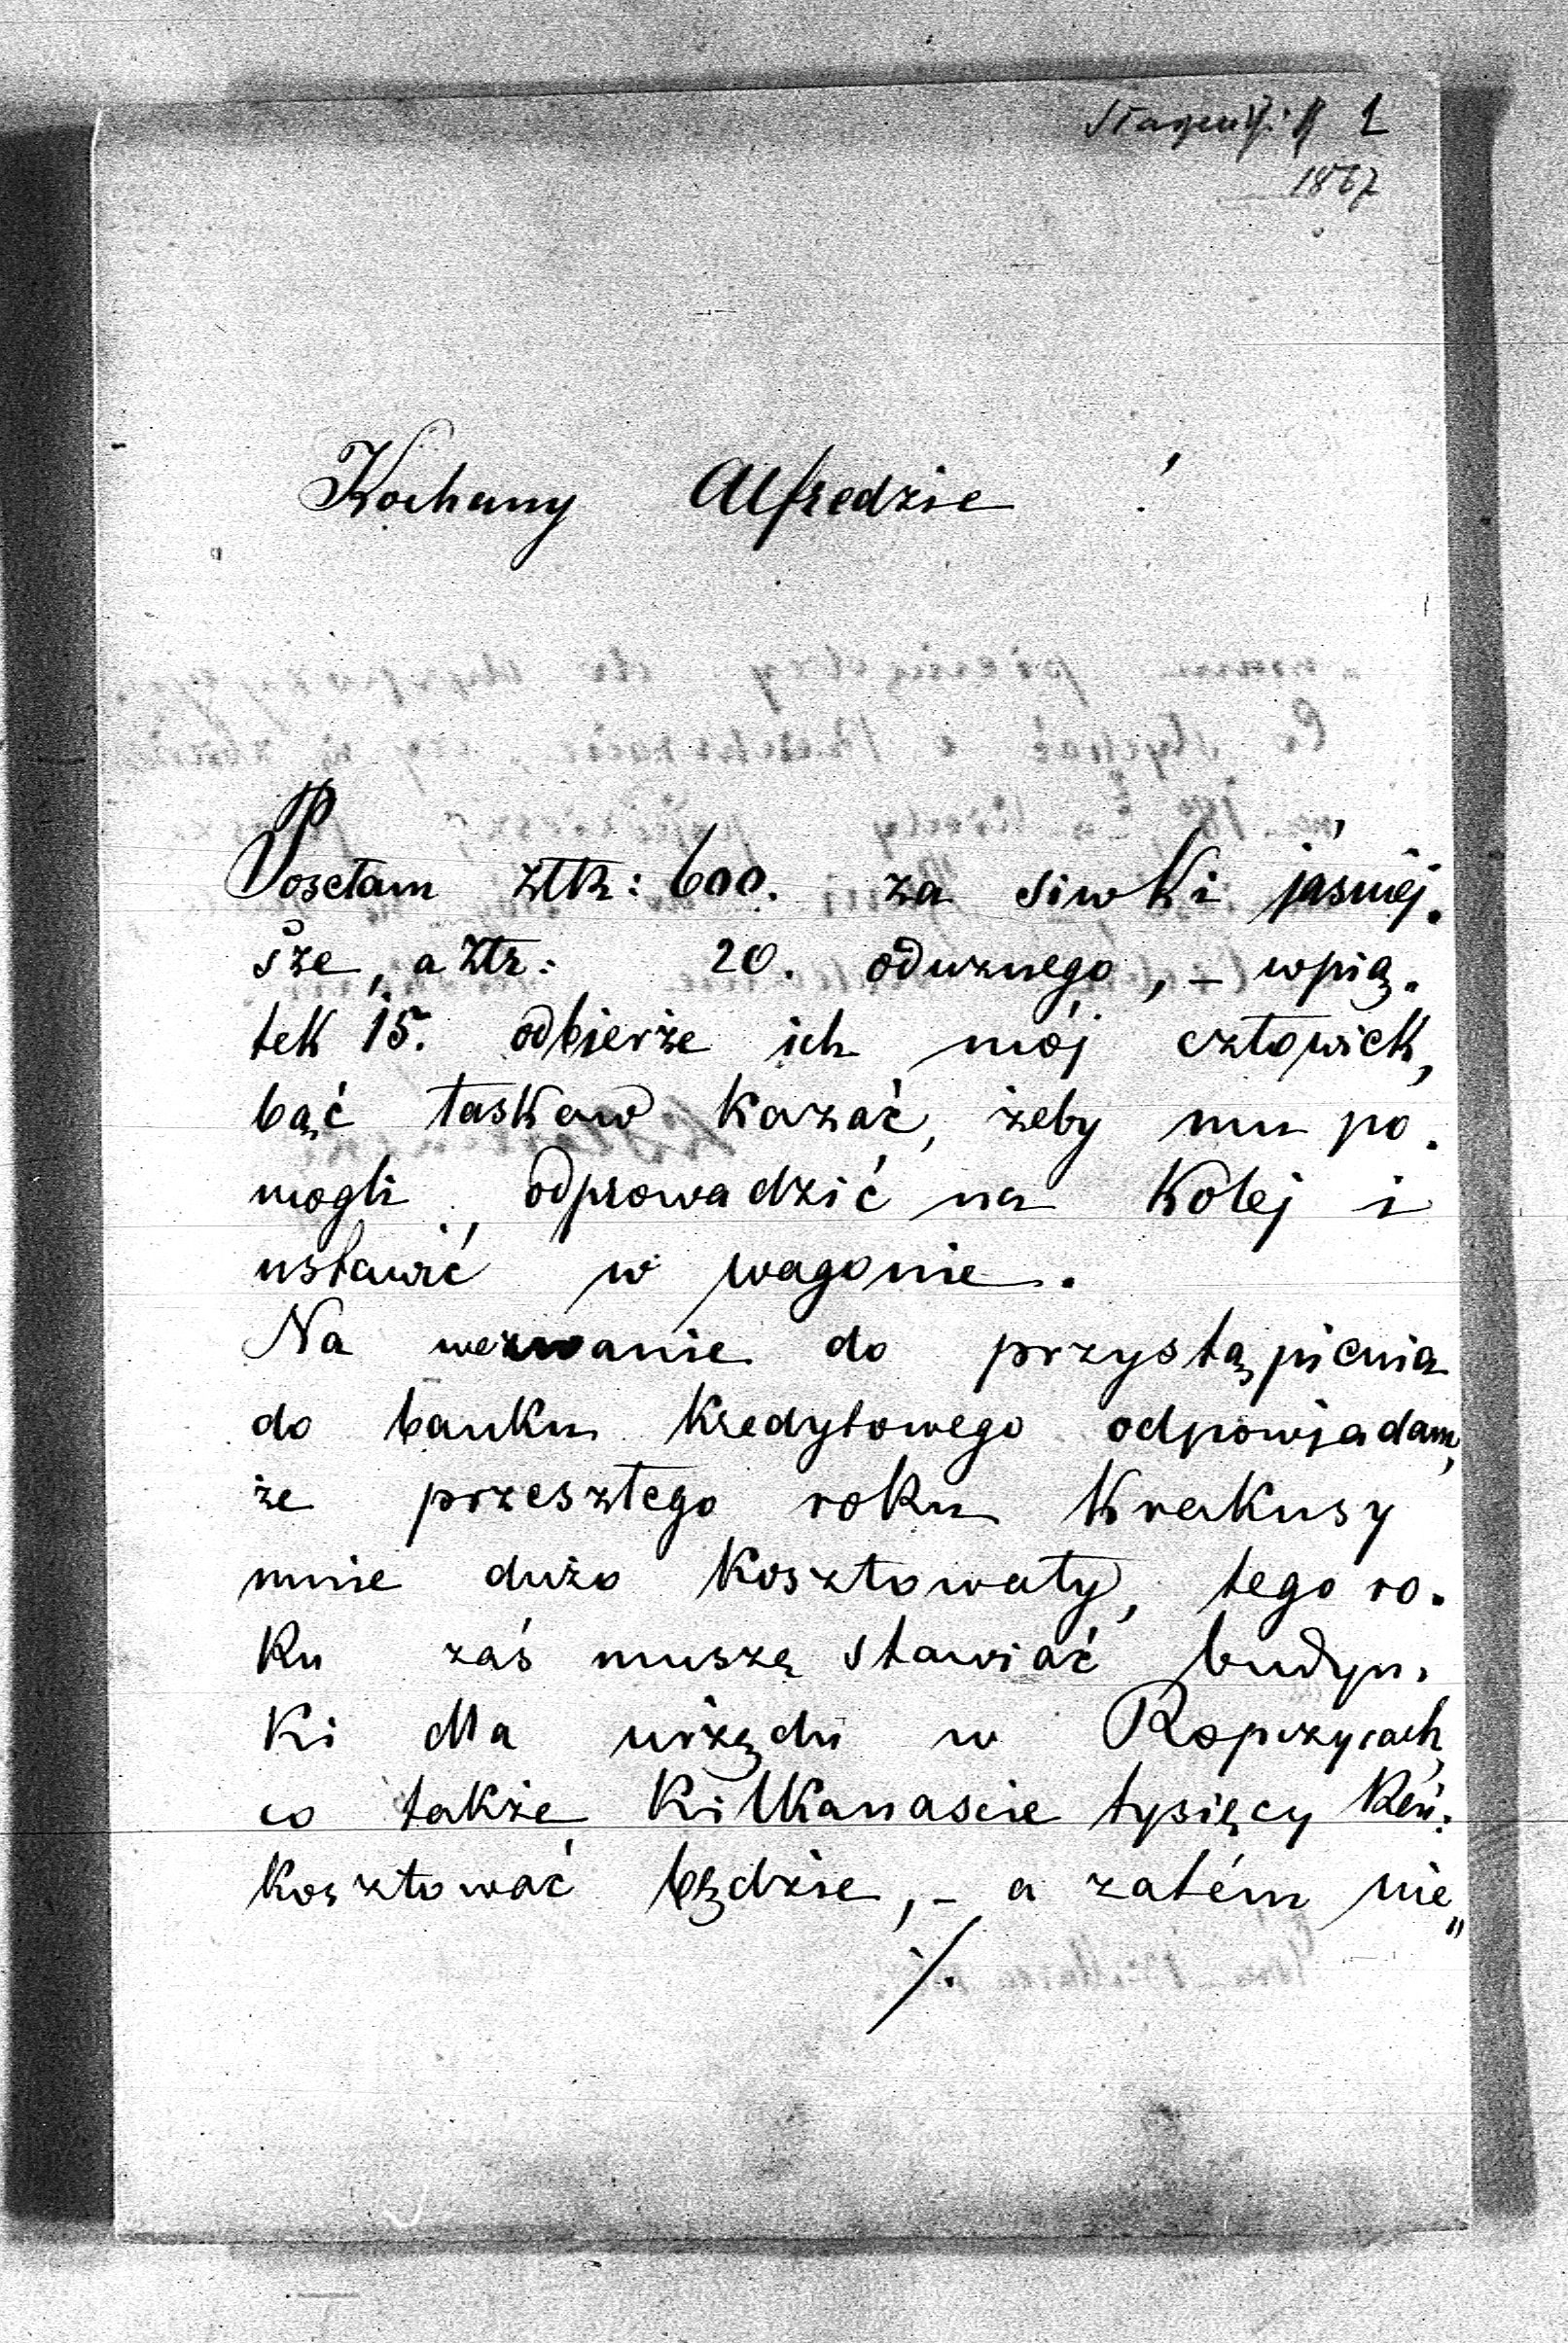 1
1867
Kochany Alfredzie !
Posełam złr: 600. za siwki jaśniej.
sze, a złr: 20. oduznego, – wpią.
tek 15. odbierze ich mój człowiek,
bąć łaskaw kazać, żeby mu po.
mogli odprowadzić na kolej i
ustawić w wagonie.
Na wezwanie do przystąpienia
do banku kredytowego odpowiadam,
że przeszłego roku Krakusy
mnie dużo kosztowały, tego ro.
ku zaś muszę stawiać budyn.
ki dla urzędu w Ropczycach,
co także kilkanaście tysięcy Reń:
kosztować będzie, – a zatém nie„
./.